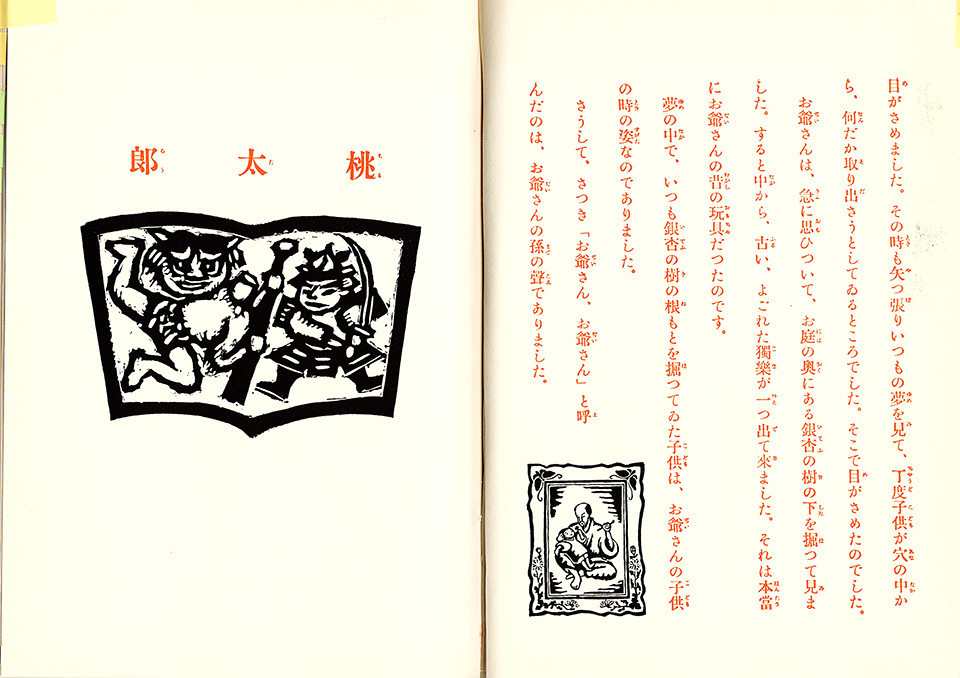 目がさめました。その時も矢つ張りいつもの夢を見て、丁度子供が穴の中か
ら、何だか取り出さうとしてゐるところでした。そこで目がさめたのでした。
お爺さんは、急に思ひついて、お庭の奥にある銀杏の樹の下を掘つて見ま
した。すると中から、古い、よごれた獨樂が一つ出て來ました。それは本當
にお爺さんの昔の玩具だつたのです。
夢の中で、いつも銀杏の樹の根もとを掘つてゐた子供は、お爺さんの子供
の時の姿なのでありました。
さうして、さつき「お爺さん、お爺さん」と呼
んだのは、お爺さんの孫の聲でありました。
桃太郎